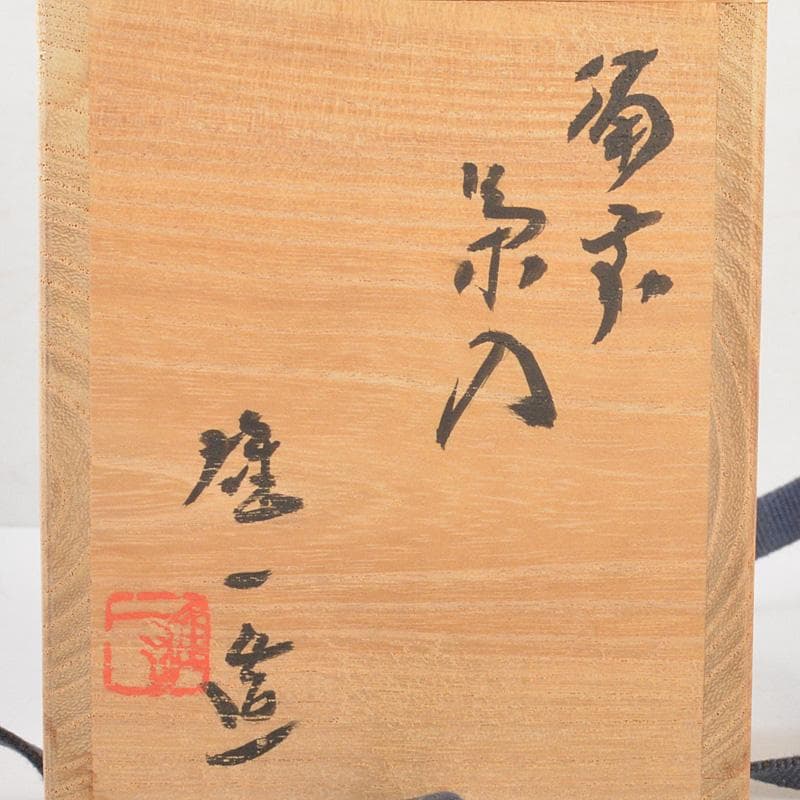 備前
茶入
雄一造
雄一